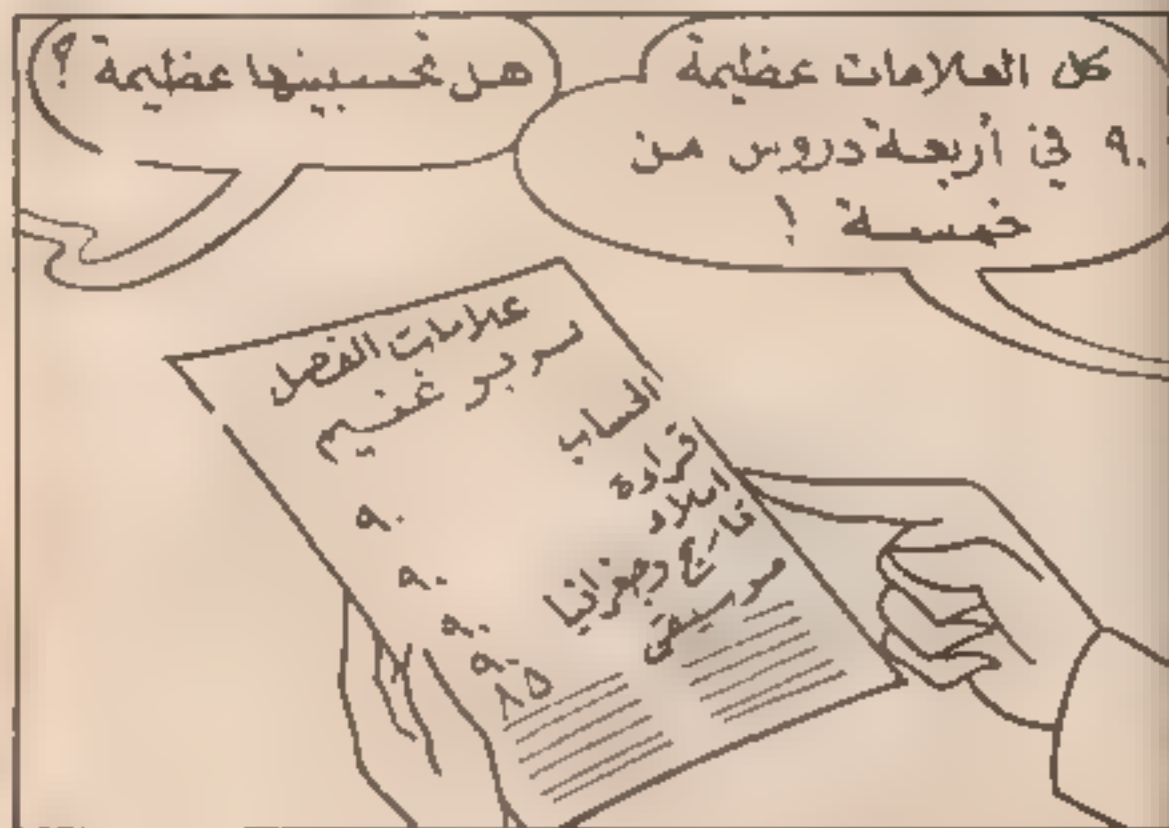 كل العلامات عظيمة
٩٠ في أربعة دروس من
خمسة !
هل تحسبينها عظيمة ؟
علامات الفصل
سوبو غنيم
الحساب
قراءة
املاء
تاريخ وجغرافيا
موسيقى
٩٠
٩٠
٩٠
٩٠
٨٥